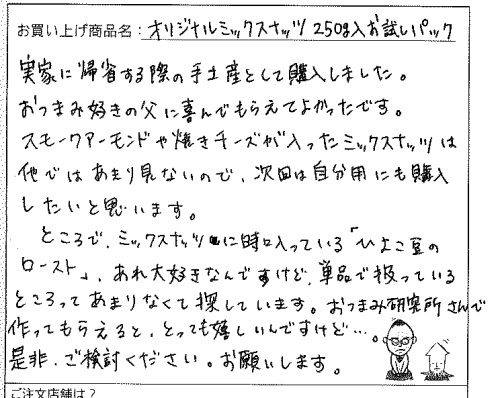 お買い上げ商品名：オリジナルミックスナッツ 250g入お試しパック
実家に帰省する際の手土産として購入しました。
おつまみ好きの父に喜んでもらえてよかったです。
スモークアーモンドや焼きチーズが入ったミックスナッツは
他ではあまり見ないので、次回は自分用にも購入
したいと思います。
ところで、ミックスナッツに時々入っている「ひよこ豆の
ロースト」、あれ大好きなんですけど、単品で扱っている
ところってあまりなくて探しています。おつまみ研究所さんで
作ってもらえると、とっても嬉しいんですけど…。
是非、ご検討ください。お願いします。
ご注文店舗は？